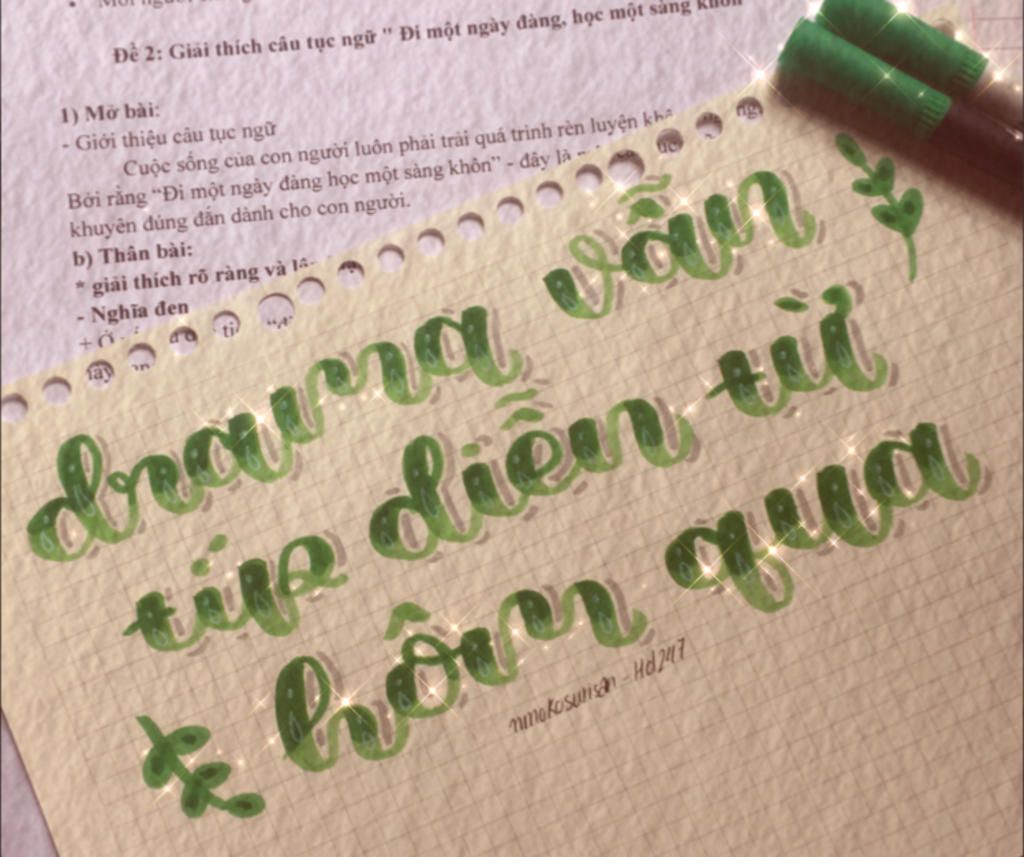 Đề 2: Giải thích câu tục ngữ " Đi một ngày đàng, học một sàng khôn
1) Mở bài:
- Giới thiệu câu tục ngữ
Cuộc sống của con người luôn phải trải quá trình rèn luyện
Bởi rằng “Đi một ngày đàng học một sàng khôn” - đây là
khuyên đúng đắn dành cho con người.
b) Thân bài:
* giải thích rõ ràng và
- Nghĩa đen
drama vẫn
típ diễn từ
hôm qua
nmokosunsan - Hd247